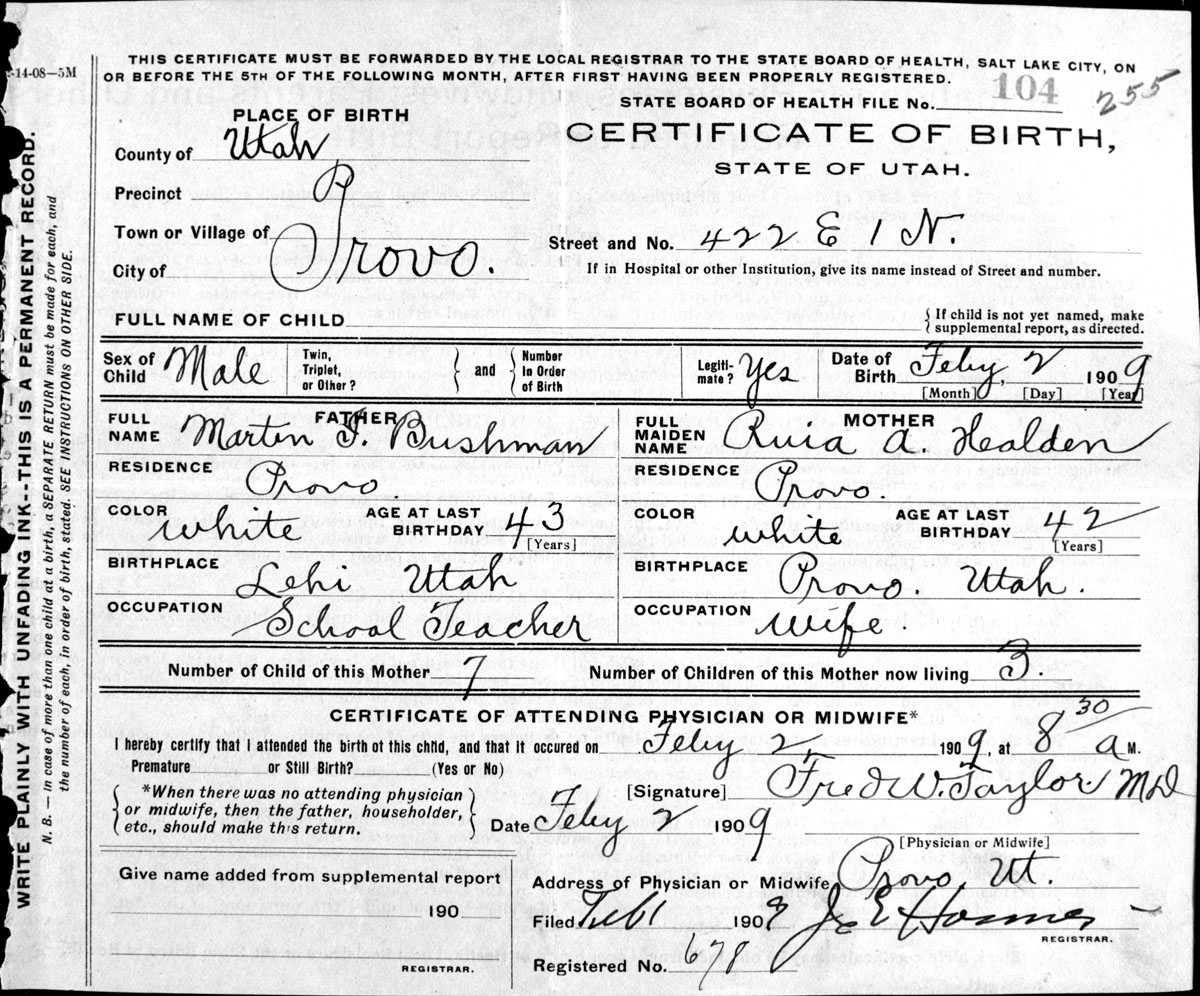 -14-08—5M
THIS CERTIFICATE MUST BE FORWARDED BY THE LOCAL REGISTRAR TO THE STATE BOARD OF HEALTH, SALT LAKE CITY, ON
OR BEFORE THE 5TH OF THE FOLLOWING MONTH, AFTER FIRST HAVING BEEN PROPERLY REGISTERED.
STATE BOARD OF HEALTH FILE No. 104 255
PLACE OF BIRTH
CERTIFICATE OF BIRTH,
STATE OF UTAH.
County of Utah
Precinct P
Town or Village of
City of Provo.
Street and No. 422 E 1 N.
If in Hospital or other Institution, give its name instead of Street and number.
FULL NAME OF CHILD
{ If child is not yet named, make
supplemental report, as directed.
Sex of Child Male Twin, Triplet, or Other? } and { Number In Order of Birth Legiti-mate? Yes Date of Birth Feby, 2 1909
[Month] [Day] [Year]
FATHER MOTHER
FULL NAME Martin F. Bushman FULL MAIDEN NAME A. Healden
RESIDENCE Provo. RESIDENCE Provo.
COLOR white AGE AT LAST BIRTHDAY 43 [Years] COLOR white AGE AT LAST BIRTHDAY 42 [Years]
BIRTHPLACE Lehi Utah BIRTHPLACE Provo. Utah.
OCCUPATION School Teacher OCCUPATION Wife.
Number of Child of this Mother 7 Number of Children of this Mother now living 3.
CERTIFICATE OF ATTENDING PHYSICIAN OR MIDWIFE*
I hereby certify that I attended the birth of this child, and that it occured on Feby 2, 1909, at 8 30 a M.
Premature or Still Birth? (Yes or No)
{ *When there was no attending physician
or midwife, then the father, householder,
etc., should make this return. }
[Signature] Fred W. Taylor MD
Date Feby 2 1909
[Physician or Midwife]
Give name added from supplemental report
190
REGISTRAR.
Address of Physician or Midwife Provo, Ut.
Filed 1909
REGISTRAR.
Registered No. 678
WRITE PLAINLY WITH UNFADING INK--THIS IS A PERMANENT RECORD.
N. B.—In case of more than one child at a birth, a SEPARATE RETURN must be made for each, and
the number of each, in order of birth, stated. SEE INSTRUCTIONS ON OTHER SIDE.